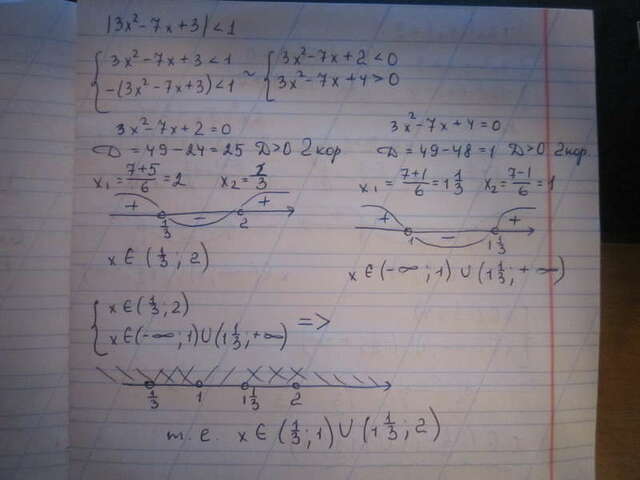 |3x²-7x+3|<1
{ 3x²-7x+3<1 ~ { 3x²-7x+2<0
-(3x²-7x+3)<1 3x²-7x+4>0
3x²-7x+2=0
D=49-24=25 D>0 2кор.
x₁=(7+5)/6=2 x₂=1/3
+ - +
1/3 2
x∈(1/3;2)
3x²-7x+4=0
D=49-48=1 D>0 2кор.
x₁=(7+1)/6=1 1/3 x₂=(7-1)/6=1
+ - +
1 1 1/3
x∈(-∞;1)∪(1 1/3;+∞)
{ x∈(1/3;2)
x∈(-∞;1)∪(1 1/3;+∞) =>
1/3 1 1 1/3 2
т.е. x∈(1/3;1)∪(1 1/3;2)